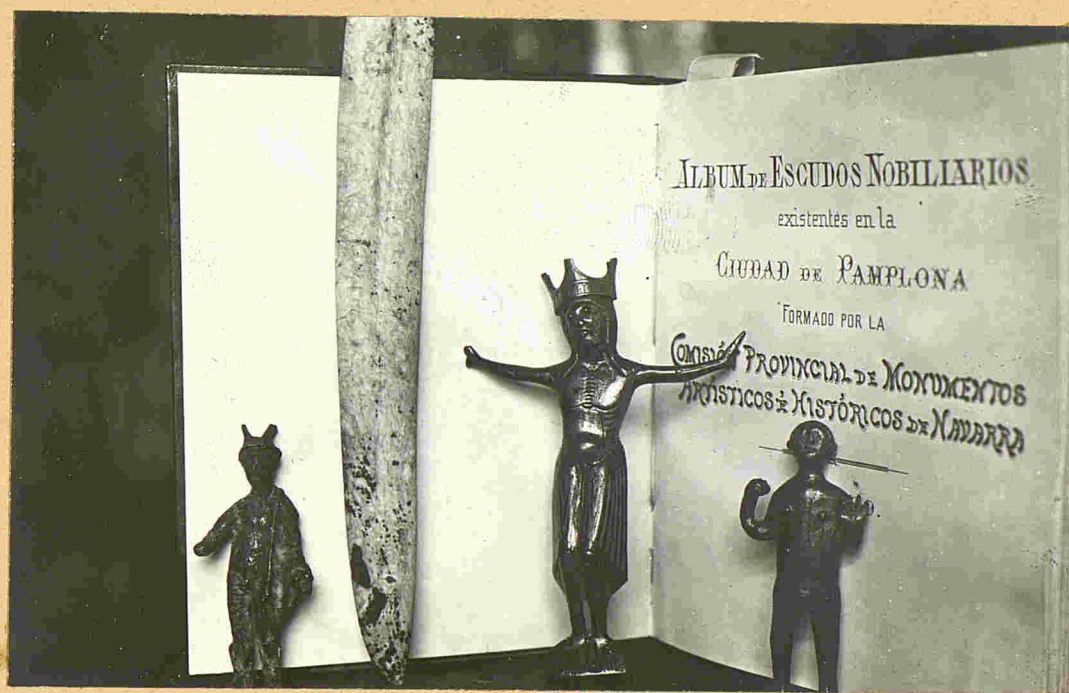 ALBUM DE ESCUDOS NOBILIARIOS
existentes en la
CIUDAD DE PAMPLONA
FORMADO POR LA
COMISIÓN PROVINCIAL DE MONUMENTOS
ARTÍSTICOS É HISTÓRICOS DE NAVARRA